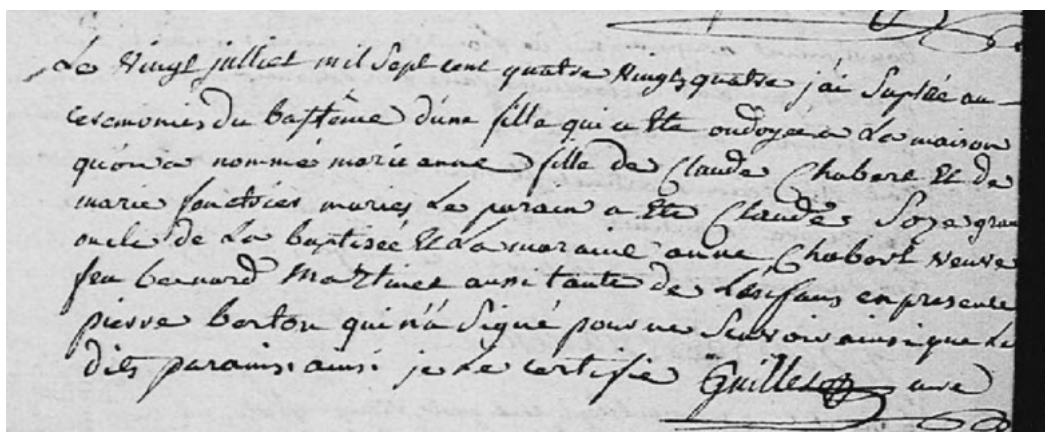 Le Vingt julliet mil Sept cent quatre Vingt quatre jai Suplée au
ceremonies du baptême d'une fille qui a Ete ondoyee a La maison
qu'on a nommé marie anne fille de Claude Chabert Et de
marie mariés Le parain a Ete Claude Soze gran
oncle de La baptisée Et La maraine anne Chabert veuve
feu bernard Martinet aussi tante de Lenfans en presence
pierre berton qui n'a Signé pour ne Scavoir ainsi que Le
dits parains ainsi je Le certifie Guillet curé